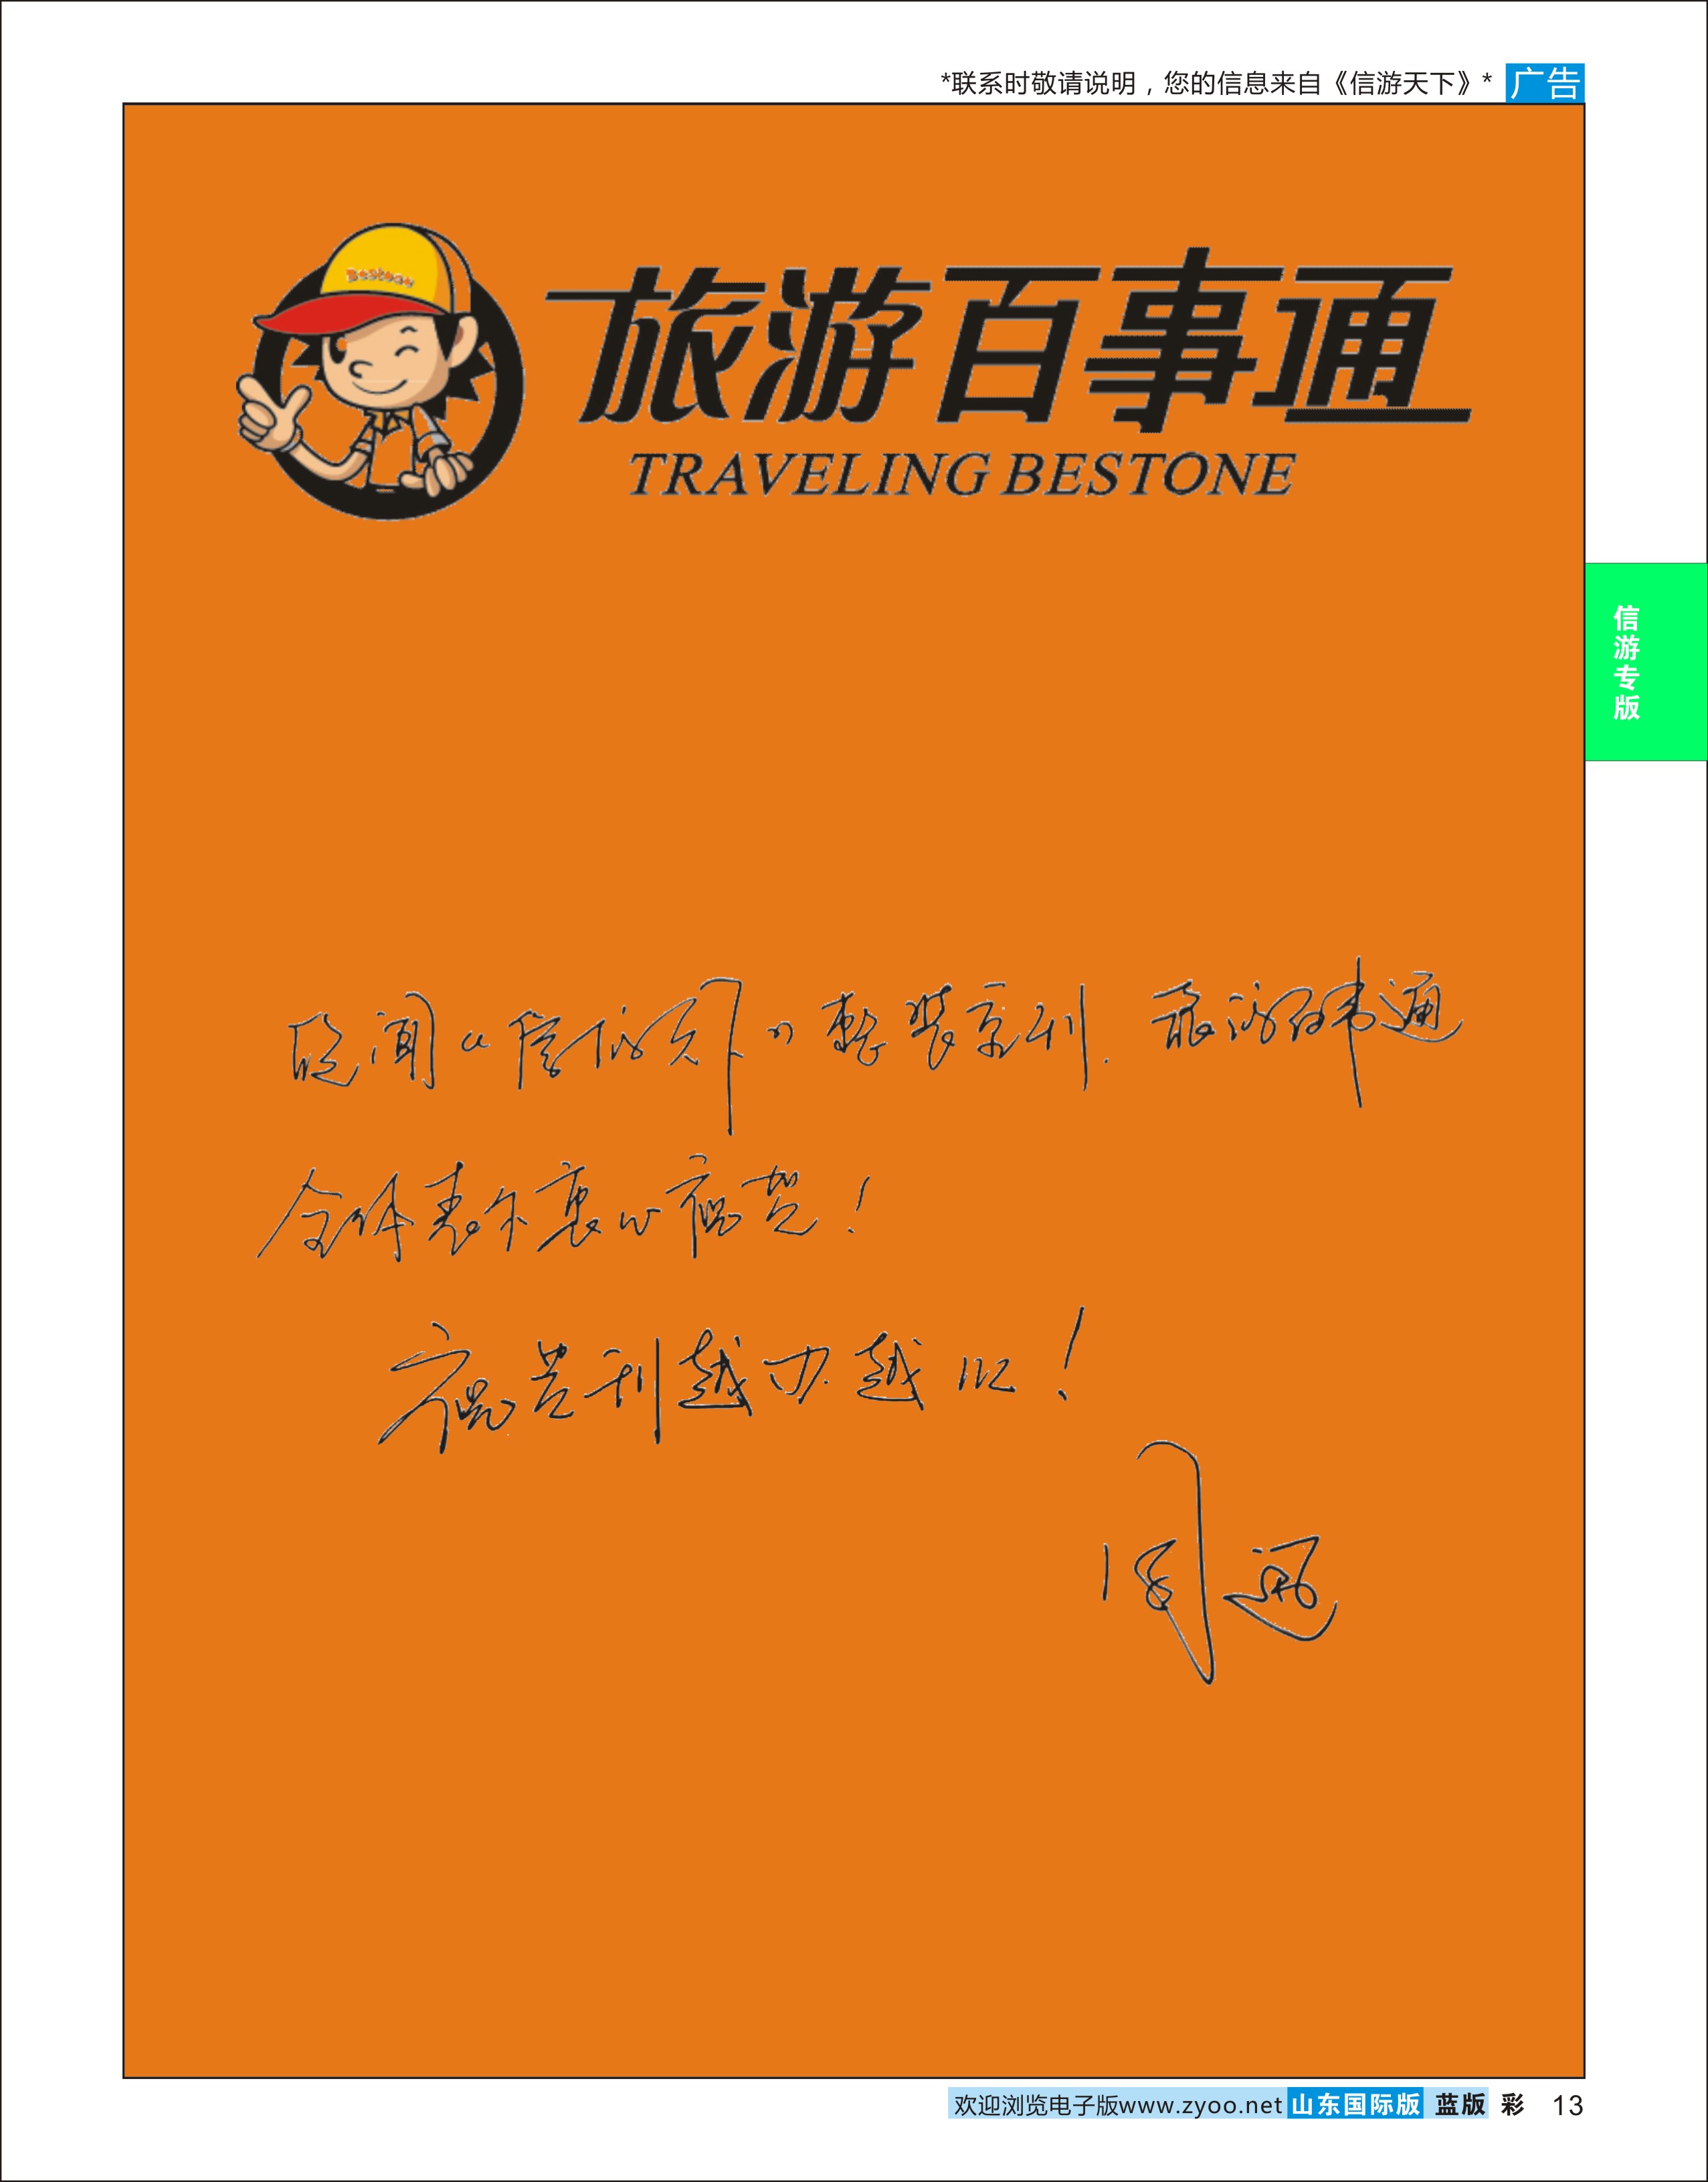 *联系时敬请说明，您的信息来自《信游天下》* 广告
Bestway
旅游百事通
TRAVELING BESTONE
信游专版
欣闻《信游天下》整装京刊. 旅游百事通
全体表示衷心祝贺！
祝贵刊越办越旺！
周迅
欢迎浏览电子版www.zyoo.net 山东国际版 蓝版 彩 13